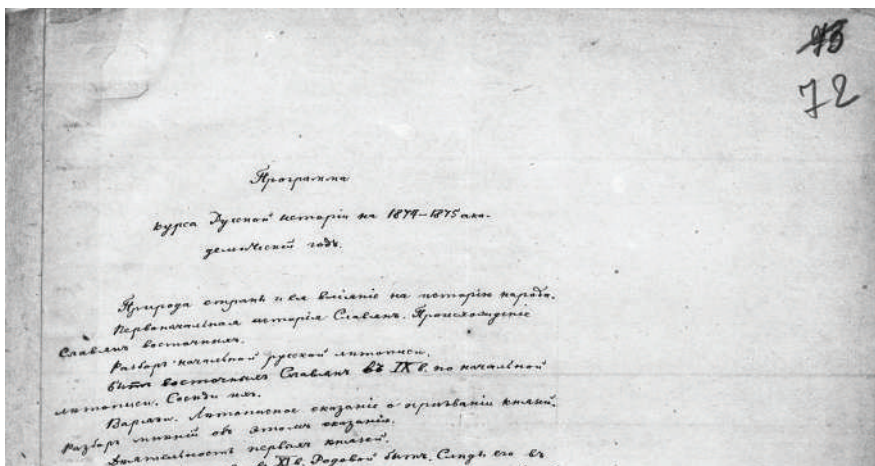 72
Программа
курса Русской исторіи на 1874–1875 ака-
демическій годъ.
Природа страны и ея вліяніе на исторію народа.
Первоначальная исторія Славянъ. Происхожденіе
Славянъ восточныхъ.
Разборъ начальной русской лѣтописи.
Бытъ восточныхъ Славянъ въ IX в. по начальной
лѣтописи. Сосѣди ихъ.
Варяги. Лѣтописное сказаніе о призваніи князей.
Разборъ мнѣній объ этомъ сказаніи.
Дѣятельность первыхъ князей.
въ XI в. Родовой бытъ. Слѣды его въ